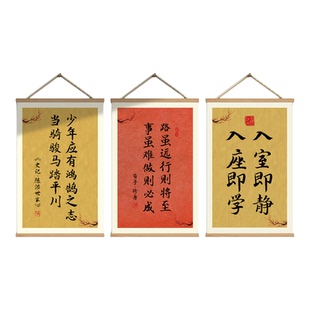 少年应有鸿鹄之志
当骑骏马踏平川
《史记·陈涉世家》
路虽远行则将至
事虽难做则必成
荀子·修身
入室即静
入座即学